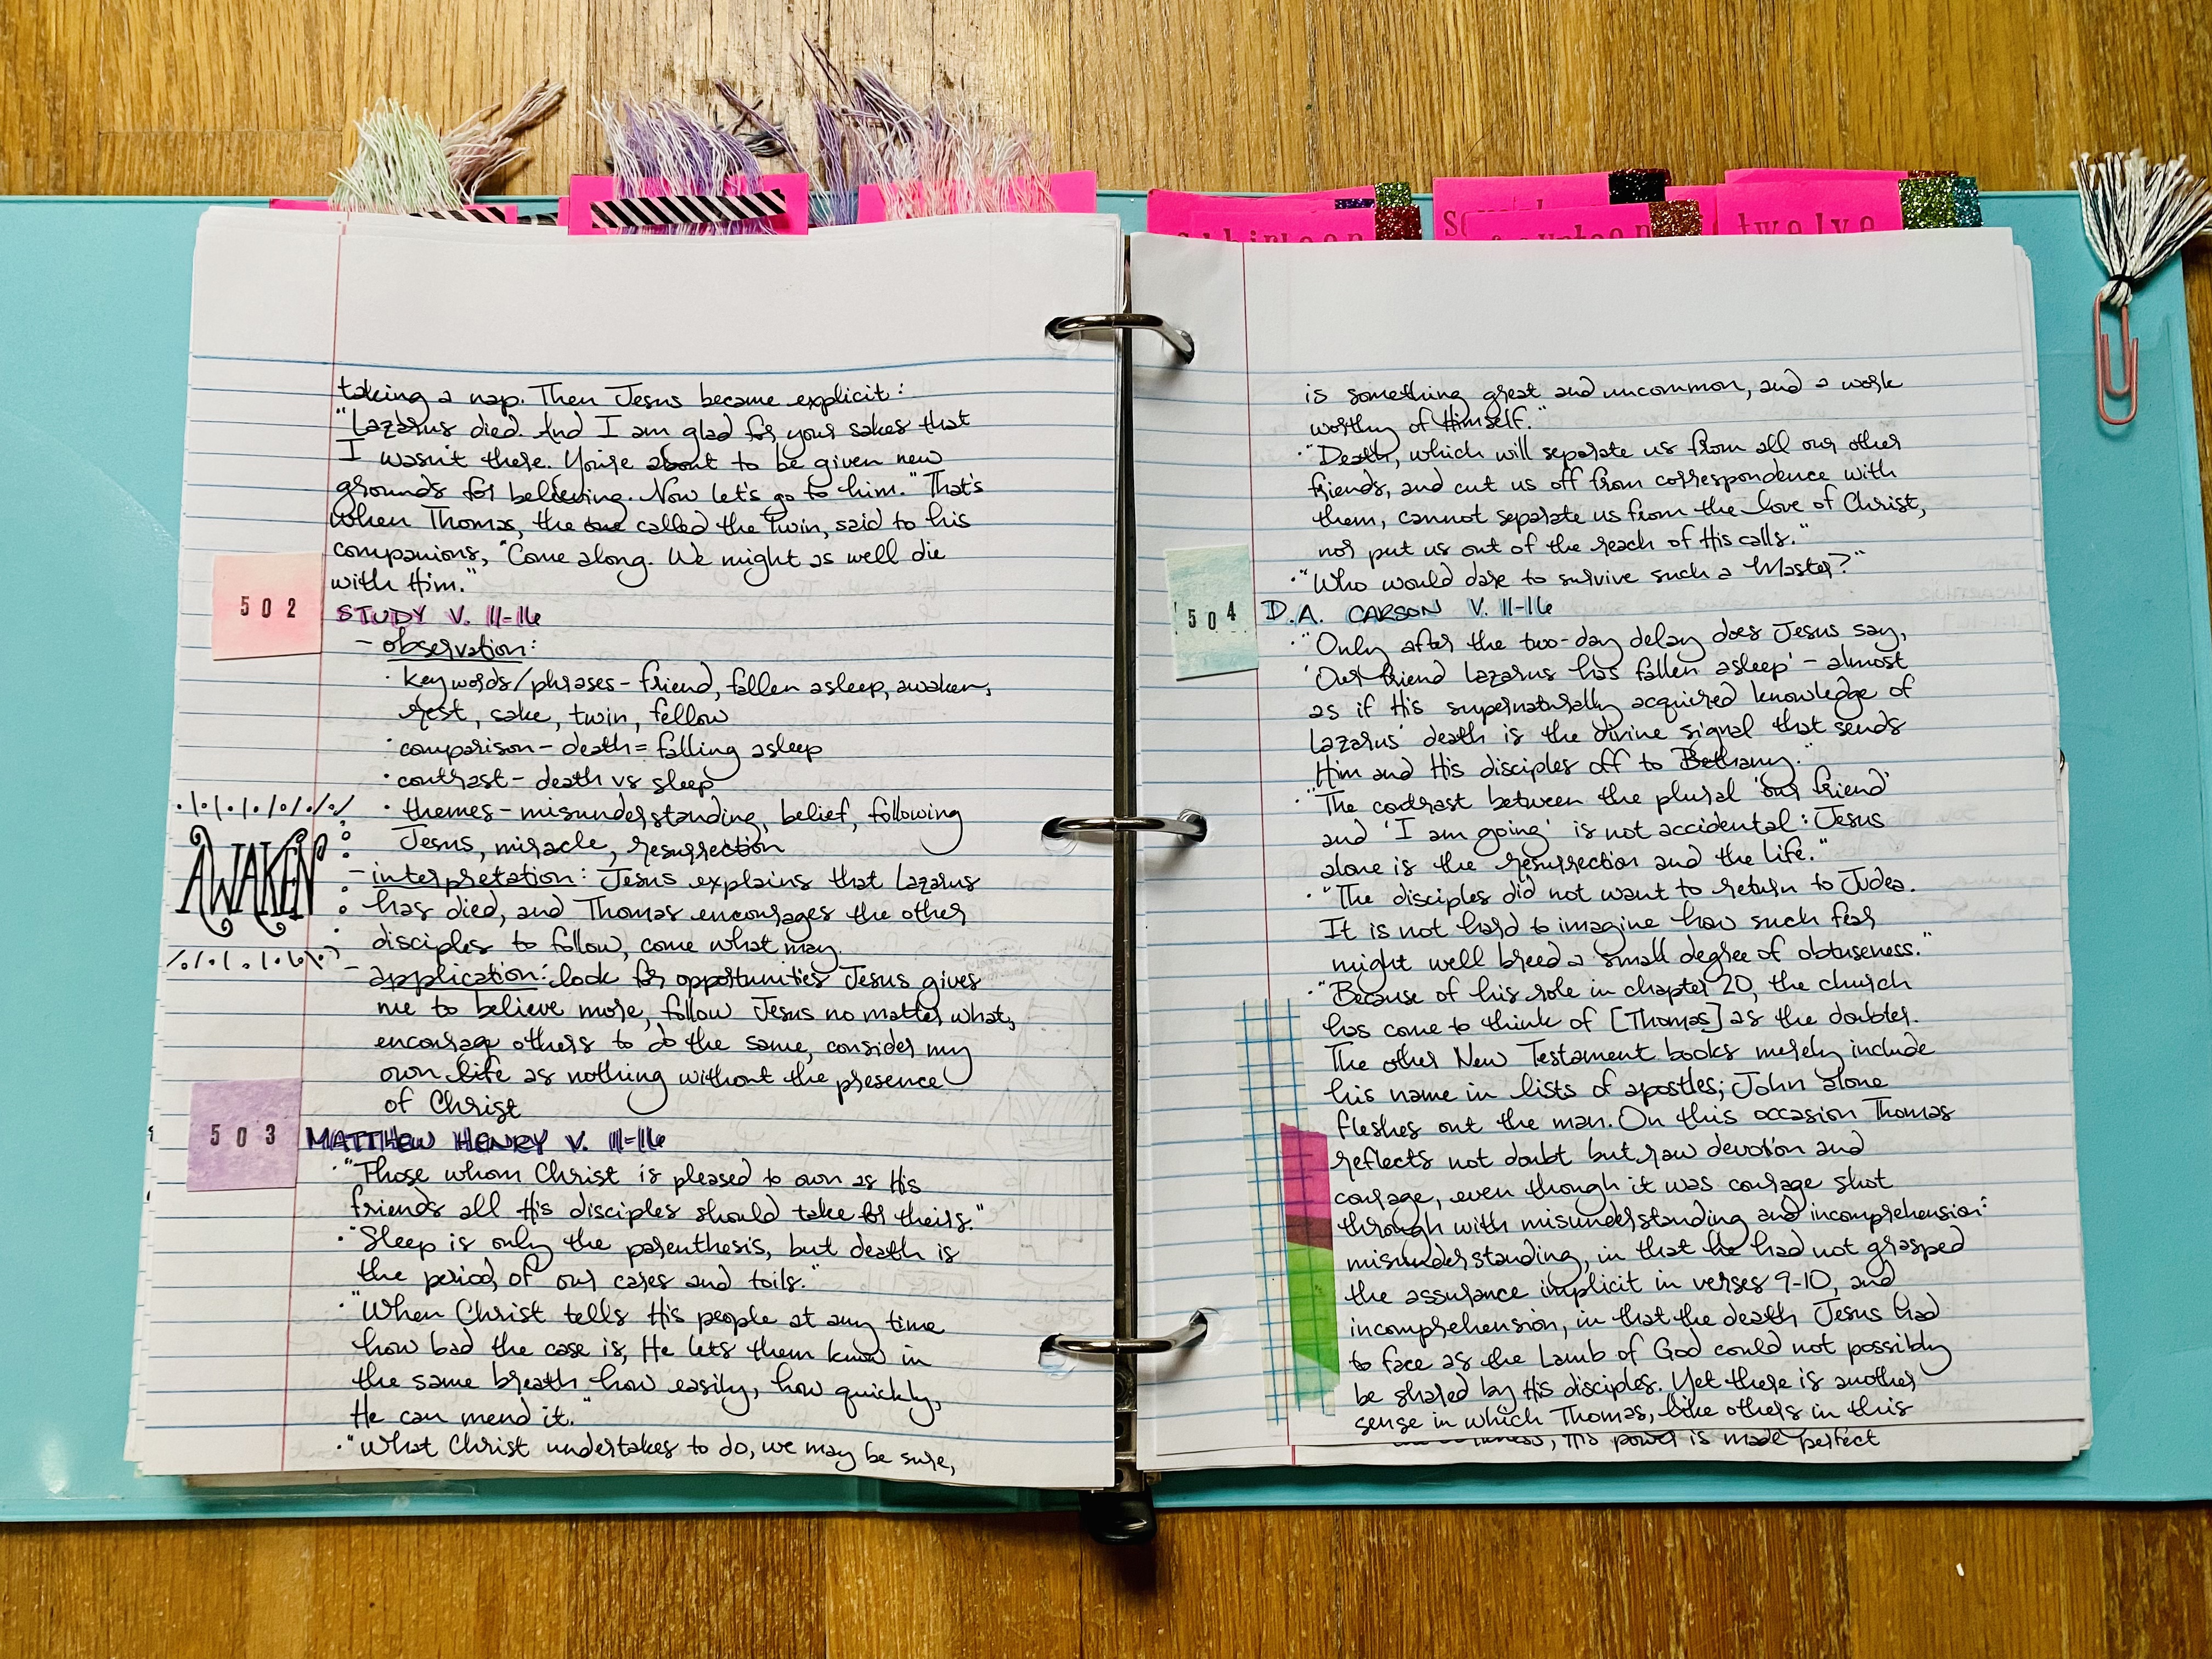 twelve
taking a nap. Then Jesus became explicit:
"Lazarus died. And I am glad for your sakes that
I wasn't there. You're about to be given new
grounds for believing. Now let's go to him." That's
when Thomas, the one called the Twin, said to his
companions, "Come along. We might as well die
with Him."
502
STUDY V. 11-16
- observation:
· key words/phrases - friend, fallen asleep, awaken,
rest, sake, twin, fellow
· comparison - death = falling asleep
· contrast - death vs sleep
· themes - misunderstanding, belief, following
Jesus, miracle, resurrection
AWAKEN
- interpretation: Jesus explains that Lazarus
has died, and Thomas encourages the other
disciples to follow, come what may.
- application: look for opportunities Jesus gives
me to believe more, follow Jesus no matter what,
encourage others to do the same, consider my
own life as nothing without the presence
of Christ
503
MATTHEW HENRY V. 11-16
· "Those whom Christ is pleased to own as His
friends all His disciples should take for theirs."
· "Sleep is only the parenthesis, but death is
the period, of our cares and toils."
· "When Christ tells His people at any time
how bad the case is, He lets them know in
the same breath how easily, how quickly,
He can mend it."
· "What Christ undertakes to do, we may be sure,
is something great and uncommon, and a work
worthy of Himself."
· "Death, which will separate us from all our other
friends, and cut us off from correspondence with
them, cannot separate us from the love of Christ,
nor put us out of the reach of His calls."
· "Who would dare to survive such a Master?"
504
D.A. CARSON V. 11-16
· "Only after the two-day delay does Jesus say,
'Our friend Lazarus has fallen asleep' - almost
as if His supernaturally acquired knowledge of
Lazarus' death is the divine signal that sends
Him and His disciples off to Bethany."
· "The contrast between the plural 'our friend'
and 'I am going' is not accidental: Jesus
alone is the resurrection and the life."
· "The disciples did not want to return to Judea.
It is not hard to imagine how such fear
might well breed a small degree of obtuseness."
· "Because of his role in chapter 20, the church
has come to think of [Thomas] as the doubter.
The other New Testament books merely include
his name in lists of apostles; John alone
fleshes out the man. On this occasion Thomas
reflects not doubt but raw devotion and
courage, even though it was courage shot
through with misunderstanding and incomprehension:
misunderstanding, in that he had not grasped
the assurance implicit in verses 9-10, and
incomprehension, in that the death Jesus had
to face as the Lamb of God could not possibly
be shared by His disciples. Yet there is another
sense in which Thomas, like others in this
His power is made perfect